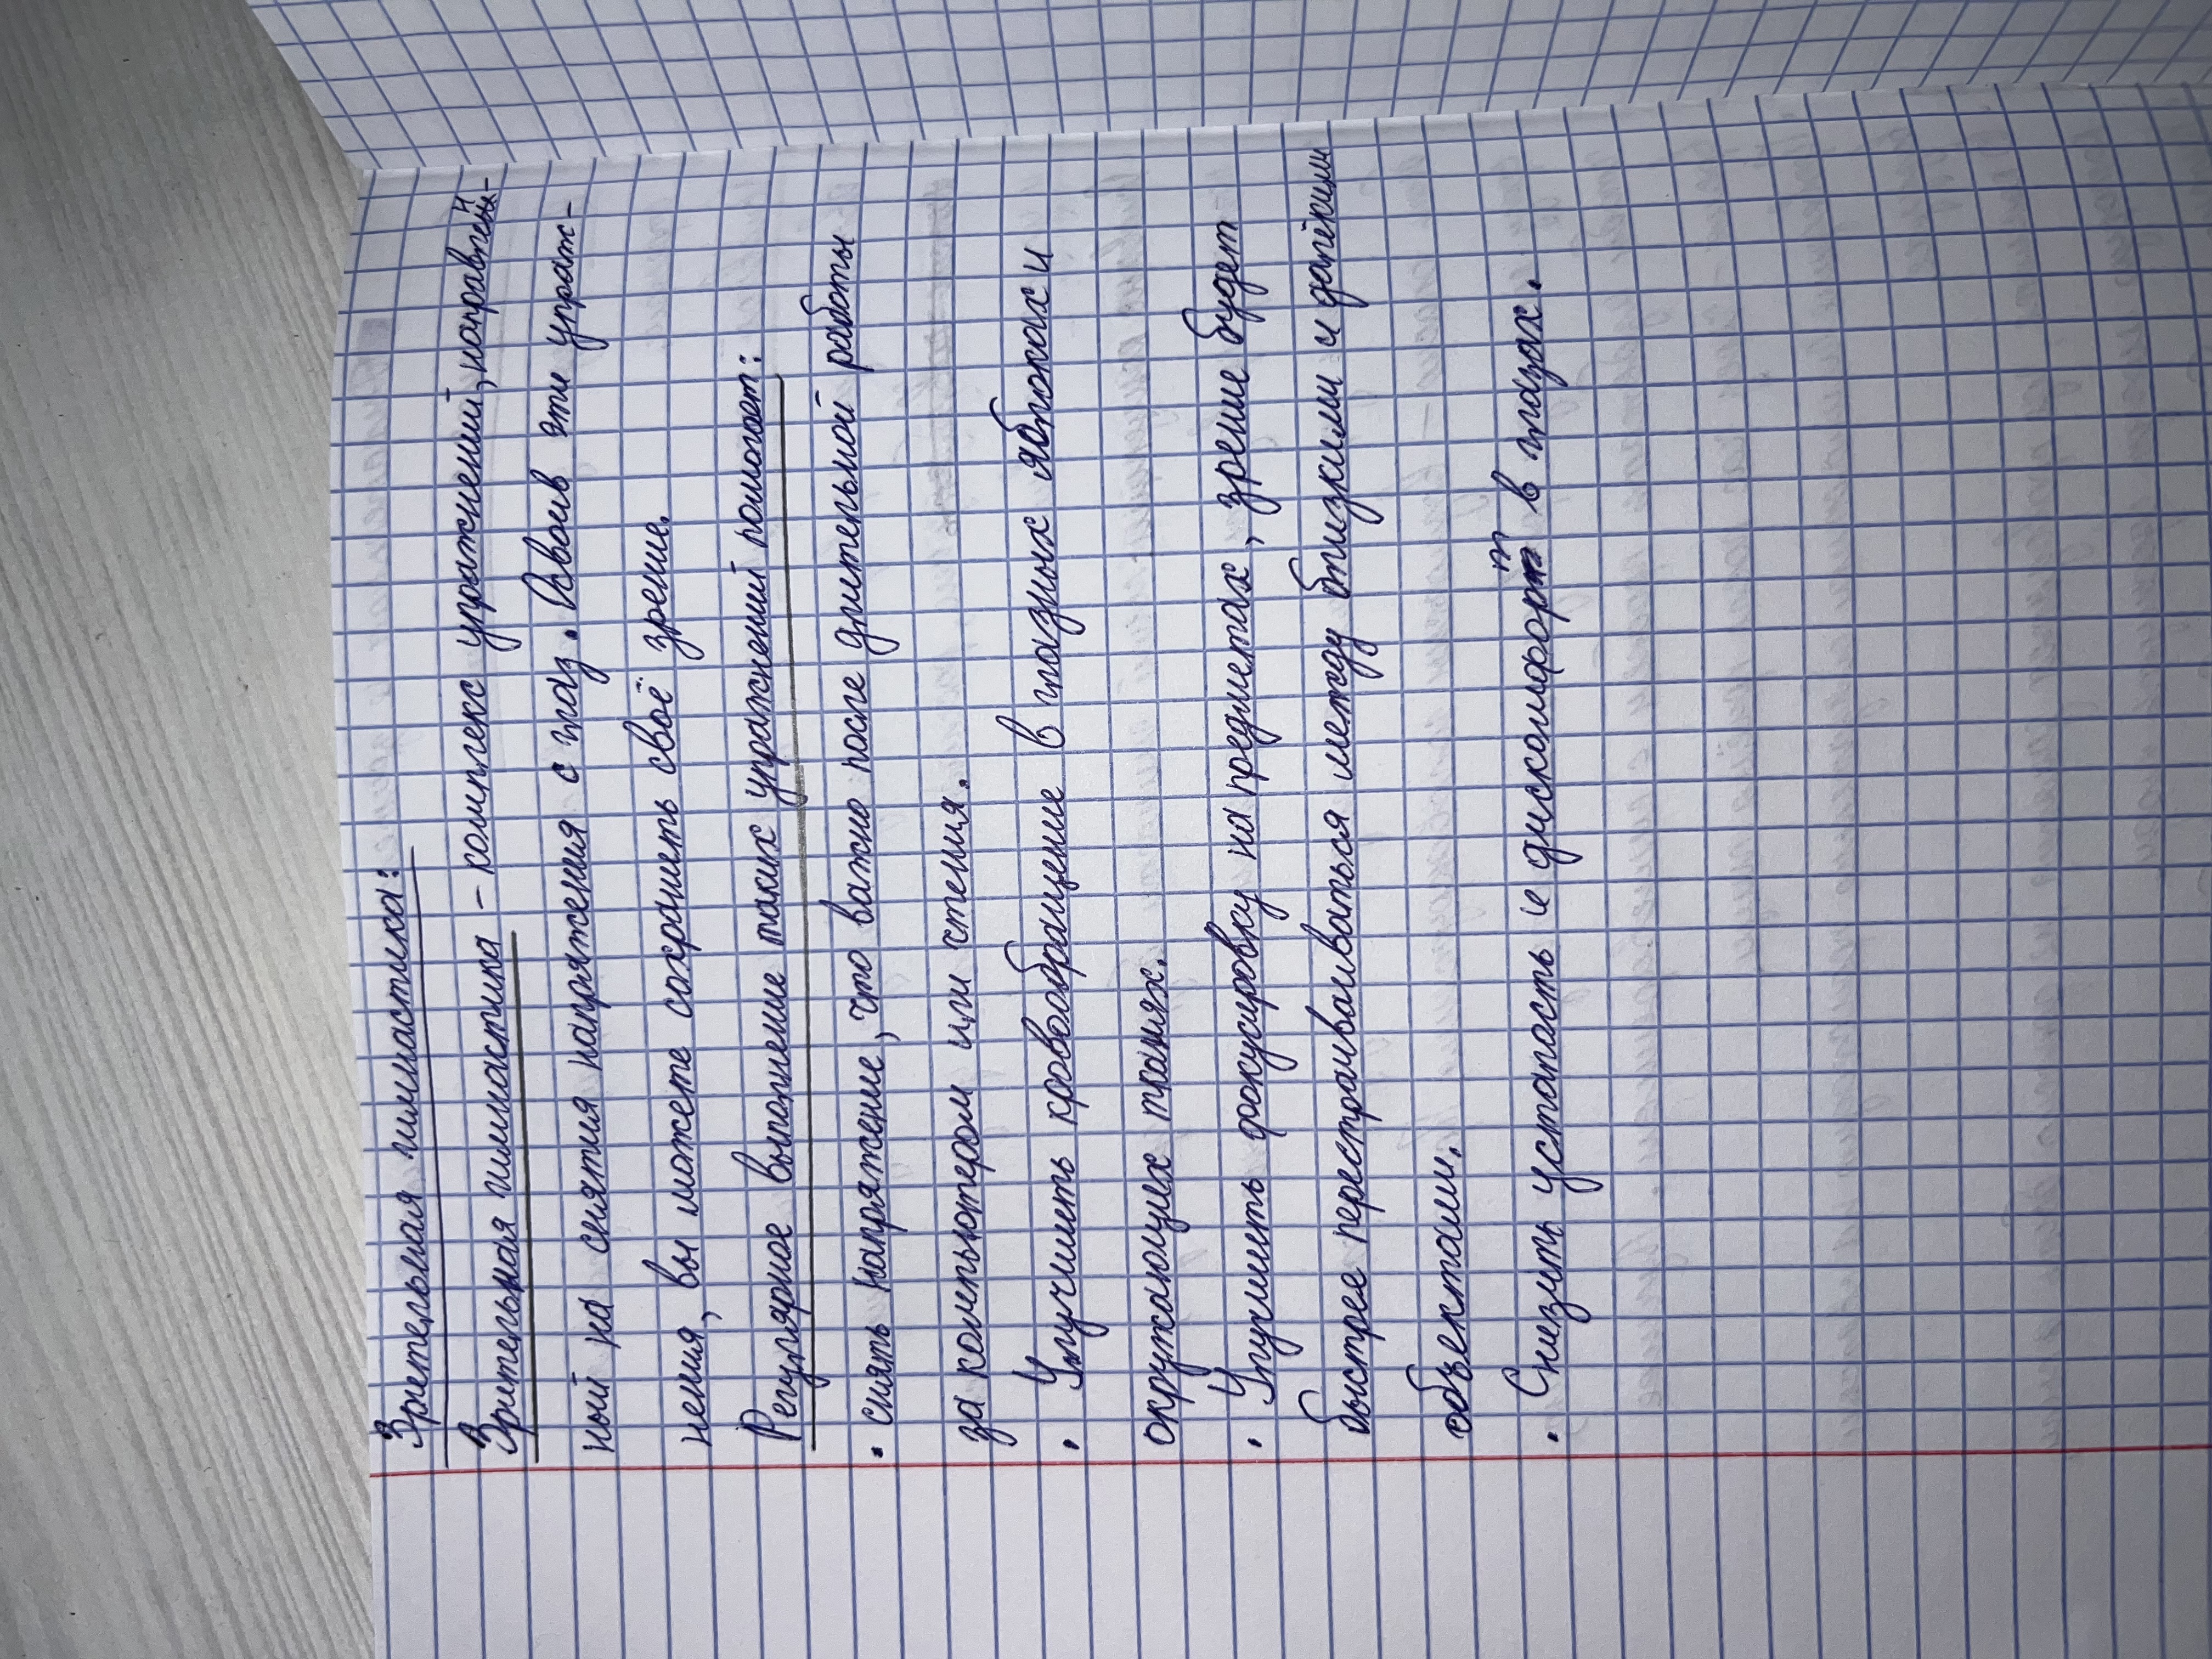 Зретельная гимнастика:
Зрительная гимнастика - комплекс упражнений, направлен-
ный на снятия напряжения с глаз. Освоив эти упраж-
нения, вы можете сохранить своё зрение.
Регулярное выполнение таких упражнений помогает:
• снять напряжение, что важно после длительной работы
за компьютером или чтения.
• Улучшить кровообращение в глазных яблоках и
окружающих тканях.
• Улучшить фокусировку на предметах, зрение будет
быстрее перестраиваться между близкими и далёкими
объектами.
• Снизить усталость и дискомфорт в глазах.